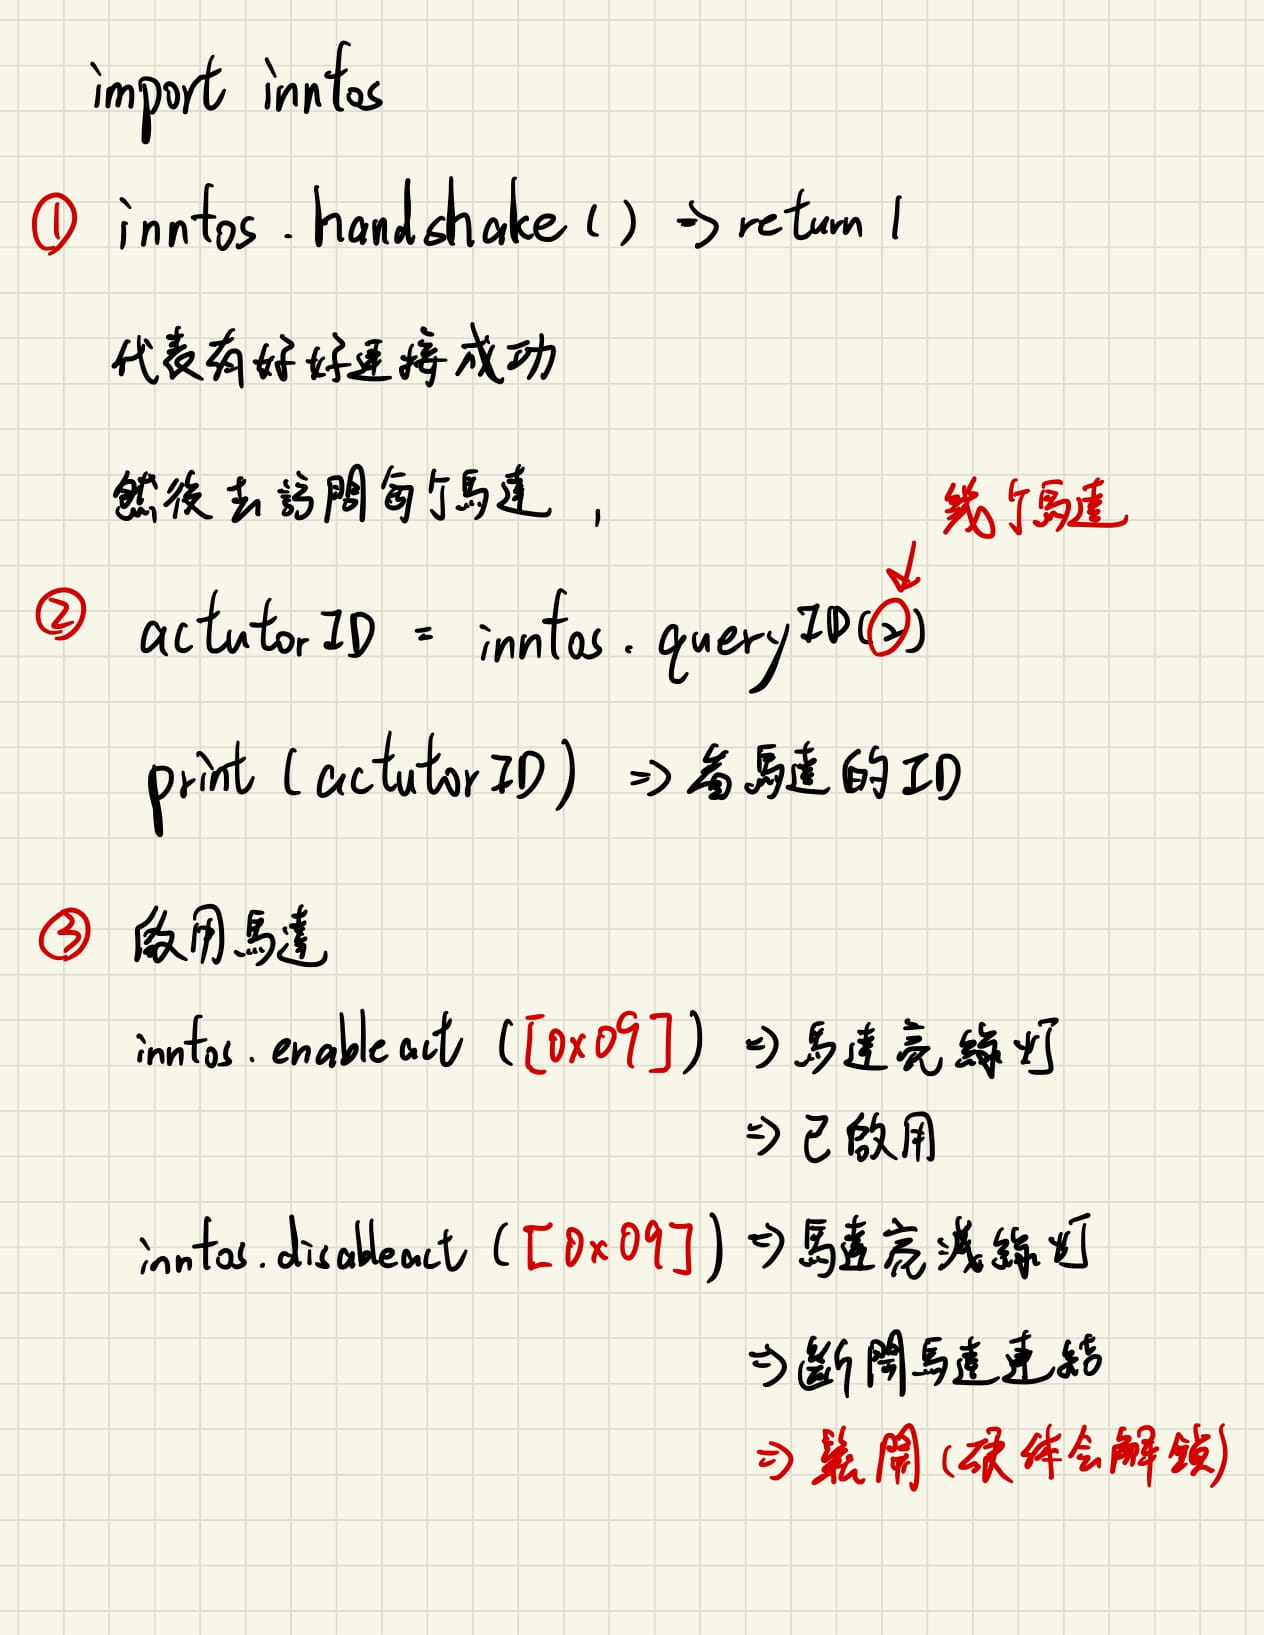 import inntos
① inntos.handshake() => return 1
代表有好好連接成功
然後去訪問每个馬達,
幾个馬達
② actutorID = inntos.queryID(2)
print(actutorID) => 看馬達的ID
③ 啟用馬達
inntos.enableact([0x09]) => 馬達亮綠灯
=> 已啟用
inntos.disableact([0x09]) => 馬達亮淺綠灯
=> 斷開馬達連結
=> 鬆開(硬件会解鎖)